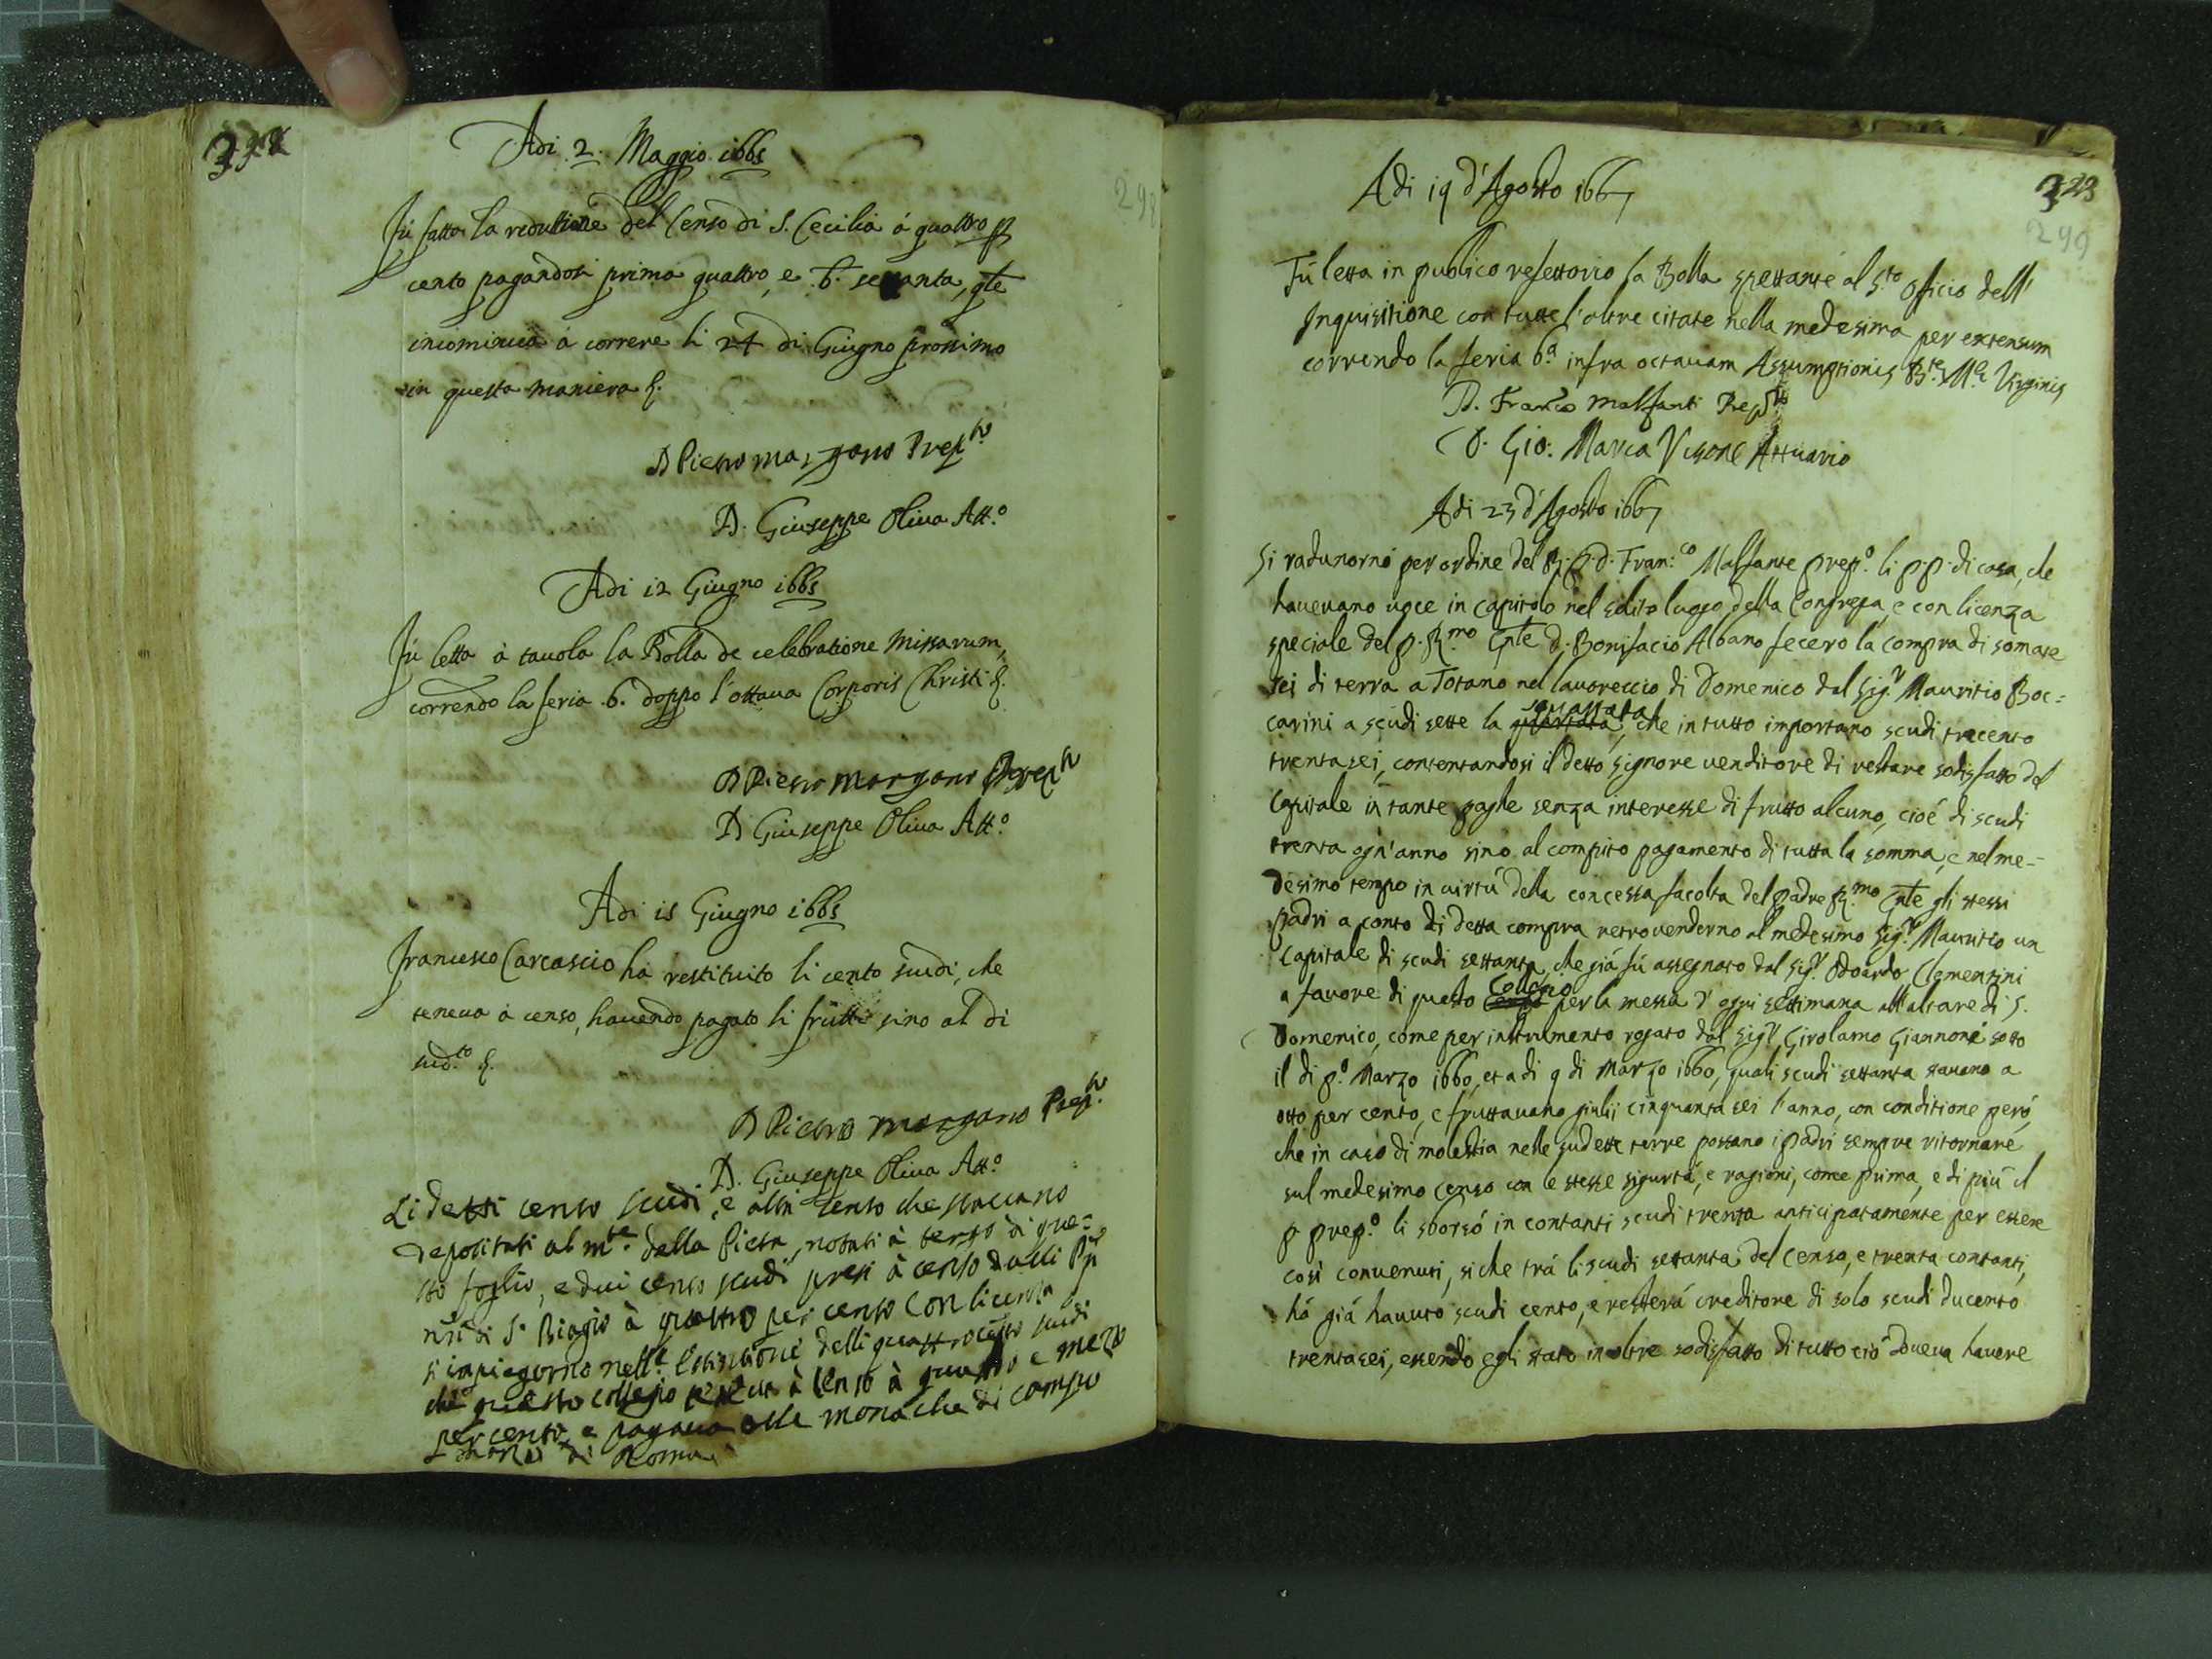 Adi 2. Maggio 1665
298
Fù fatta la redutione del Censo di S. Cecilia à quattro p
cento pagandosi prima quattro, e b. settanta, qle
incomincia à correre li 24 di Giugno prossimo
in questa maniera &.
D Pietro Morgano Prepto
D. Giuseppe Oliva Att.o
Adi 12 Giugno 1665
Fù letta à tavola la Bolla de celebratione Missarum,
correndo la feria .6. doppo l'ottava Corporis Christi &.
D Pietro Morgano Prepto
D Giuseppe Oliva Att.o
Adi 15 Giugno 1665
Francesco Carcascio hà restituito li cento scudi, che
teneva à censo, havendo pagato li frutti sino al dì
sud.to &.
D Pietro Morgano Prep.to
D. Giuseppe Oliva Att.o
Li detti cento scudi, e altri cento che stavano
depositati al m.te della Pietà, notati à tergo di que=
sto foglio, e dui cento scudi presi à censo dalli PP
nri di S. Biagio à quattro per cento con licenza
s'impiegorno nell' estintione delli quattrocento scudi
che questo collegio teneva à censo à quattro e mezo
per cento, e pagava alle monache di campo
Marzo di Roma
Adi 19 d'Agosto 1667
323
299
Fù letta in publico refettorio la Bolla spettante al S.to Officio dell'
Inquisitione con tutte l'altre citate nella medesima per extensum
correndo la feria 6.a infra octavam Assumptionis B.te M.e Virginis
D. Franco Malfanti Prep.to
D. Gio: Maria Visone Attuario
Adi 23 d'Agosto 1667
Si radunorno per ordine del R. P. d. Fran:co Malfante prep.o li p.p. di casa, che
havevano voce in capitolo nel solito luogo della Congrega, e con licenza
speciale del p. R.mo Gnle d. Bonifacio Albano fecero la compra di somate
sei di terra a Totano nel lavoreccio di Domenico dal Sig.r Mauritio Boc=
carini a scudi sette la quartata, che in tutto importano scudi trecento
trentasei, contentandosi il detto signore venditore di restare sodisfatto del
Capitale in tante paghe senza interesse di frutto alcuno, cioè di scudi
trenta ogn'anno sino al compito pagamento di tutta la somma, e nel me=
desimo tempo in virtù della concessa facoltà del Padre R.mo Gnle gli stessi
Padri a conto di detta compra retrovenderno al medesimo Sig.r Mauritio un
Capitale di scudi settanta, che già fù assegnato dal Sig.r Odoardo Clementini
a favore di questo Collegio per la messa d'ogni settimana all'altare di S.
Domenico, come per instrumento rogato dal Sig.r Girolamo Giannone sotto
il dì p.o Marzo 1660, et a dì 9 di Marzo 1660, quali scudi settanta stavano a
otto per cento, e fruttavano giulii cinquanta sei l'anno, con conditione però,
che in caso di molestia nelle sudette terre possano i padri sempre ritornare
sul medesimo censo con le stesse sigurtà, e ragioni, come prima, e di più il
p prep.o li sborsò in contanti scudi trenta anticipatamente per essere
così convenuti, siche trà li scudi settanta del censo, e trenta contanti,
hà già havuto scudi cento, e resterà creditore di solo scudi ducento
trentasei, essendo egli stato inoltre sodisfatto di tutto ciò doveva havere